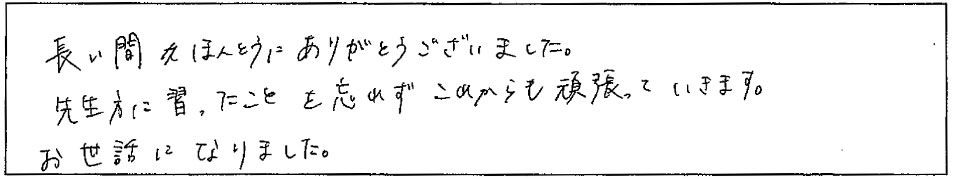 長い間ほんとうにありがとうございました。
先生方に習ったことを忘れずこれからも頑張っていきます。
お世話になりました。